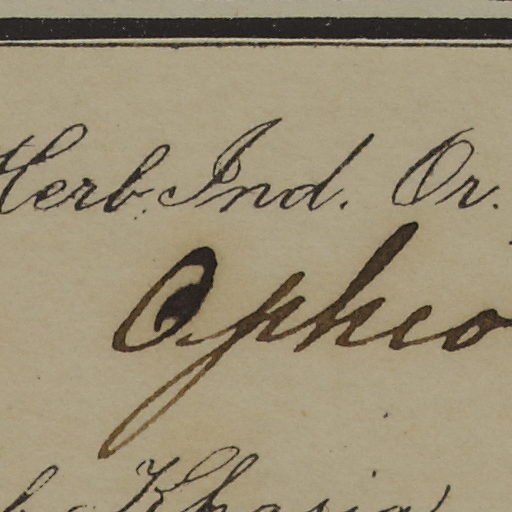 Herb. Ind. Or.
Ophio
Khasia